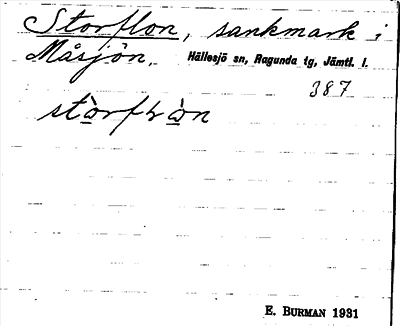 Storflon, sankmark i
Måsjön. Hällesjö sn, Ragunda tg, Jämtl. l.
387
E. BURMAN 1931